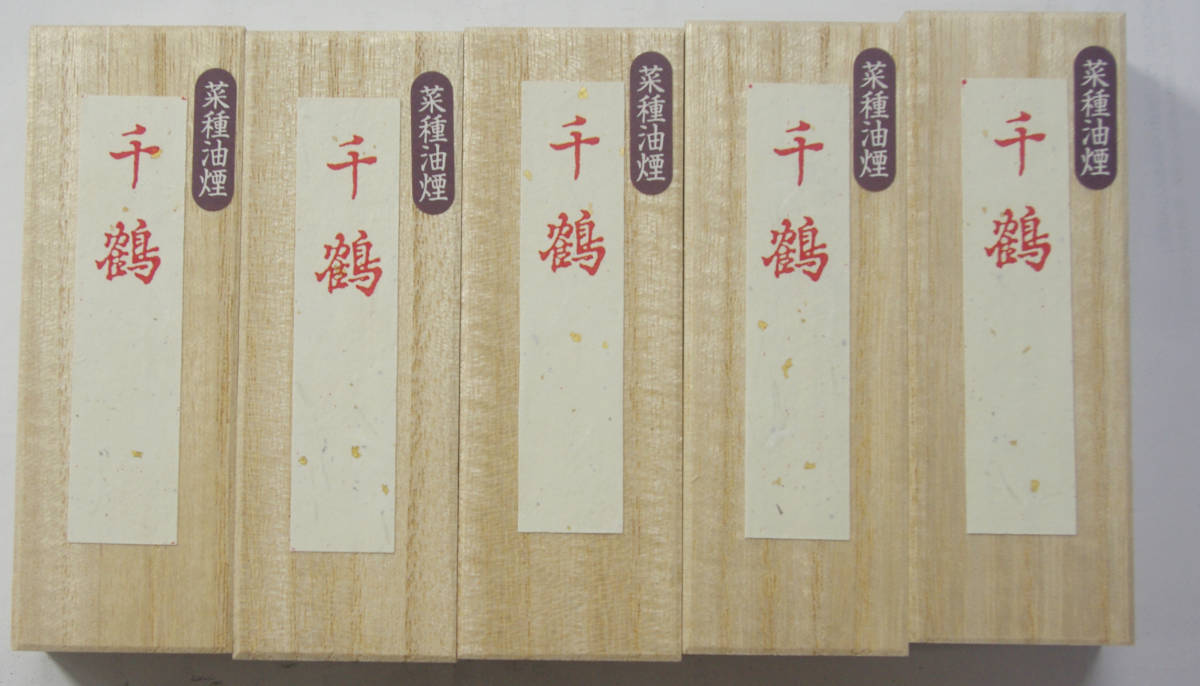 菜種油煙
千鶴
菜種油煙
千鶴
菜種油煙
千鶴
菜種油煙
千鶴
菜種油煙
千鶴